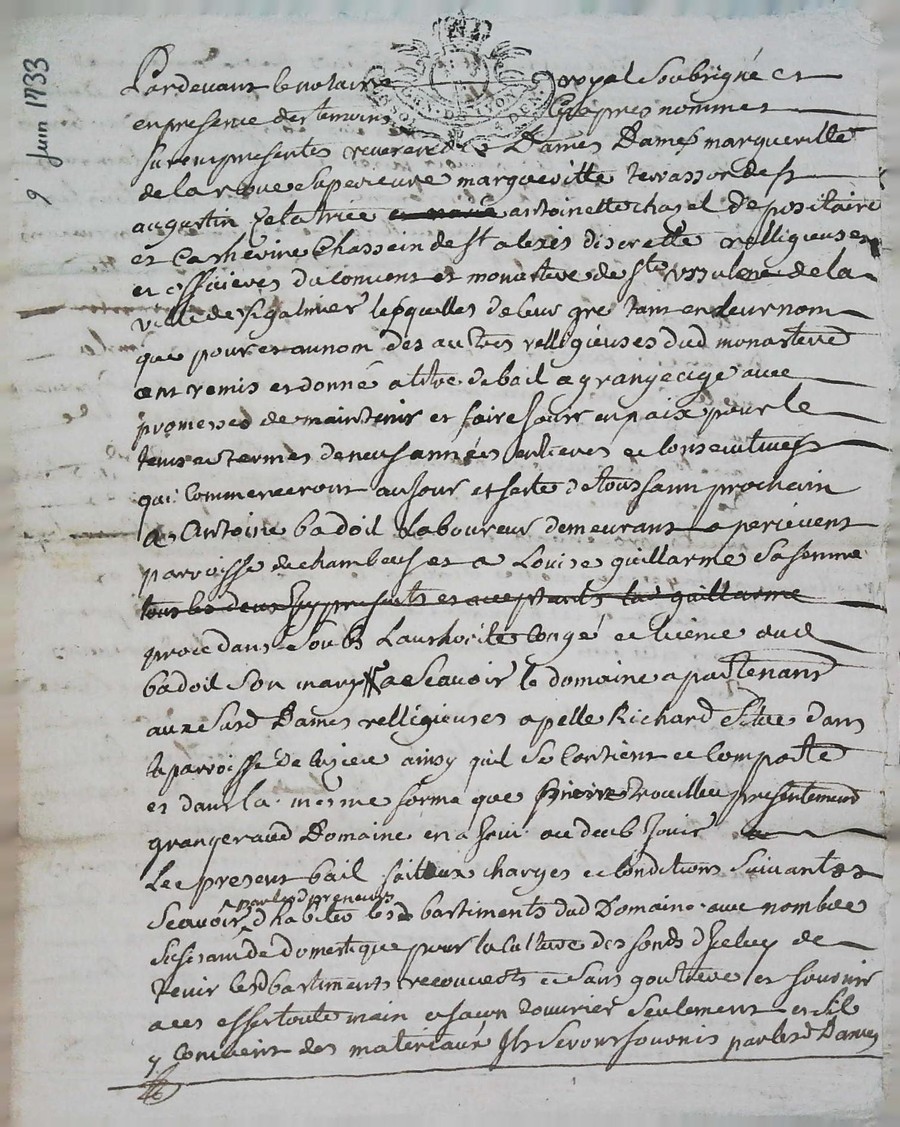 9 Juin 1733
Pardevant le notaire royal soubsigné et
en presence des temoins cy apres nommes
sur em presentes reverendes Dames Dames margueritte
de la superieure margueritte terrasson de st
augustin zelatrice antoinette chasel depositaire
et Catherine Chassein de st alexis discrette relligieuses
et officieres du convent et monastere de ste ursule de la
ville de st galmier lesquelles de leur gré tant en leur nom
que pour et au nom des autres relligieuses dud monastere
ont remis et donné a titre de bail a grangeage avec
promesses de maintenir et faire jouir en paix pour le
tems et termes de neuf années entieres et consecutives
qui commenceront au jour et feste de toussaint prochain
a Antoine badoil laboureur demeurant a
parroisse de chambeuf et a Louise guillarme sa femme
tous les deux icy presents et acceptants la guillarme
procedant soubs l'authorité congé et licence dud
badoil son mary a scavoir le domaine apartenant
aux susd Dames relligieuses apellé Richard situé dans
la parroisse de ainsy qu'il se contient et comporte
et dans la mesme forme que presentement
granger aud Domaine en a joui ou deub jouir
Le present bail fait aux charges et conditions suivantes
Scavoir par lesd preneurs d'habiter les d bastiments dud Domaine avec nombre
suffisant de domestique pour la culture des fonds d'iceluy de
tenir lesd bastiments recouverts et sans goutiere et fournir
a cet effet toute main et facon d'ouvrier seulement et s'il
y convient des materiaux ils seront fournis par lesd Dames